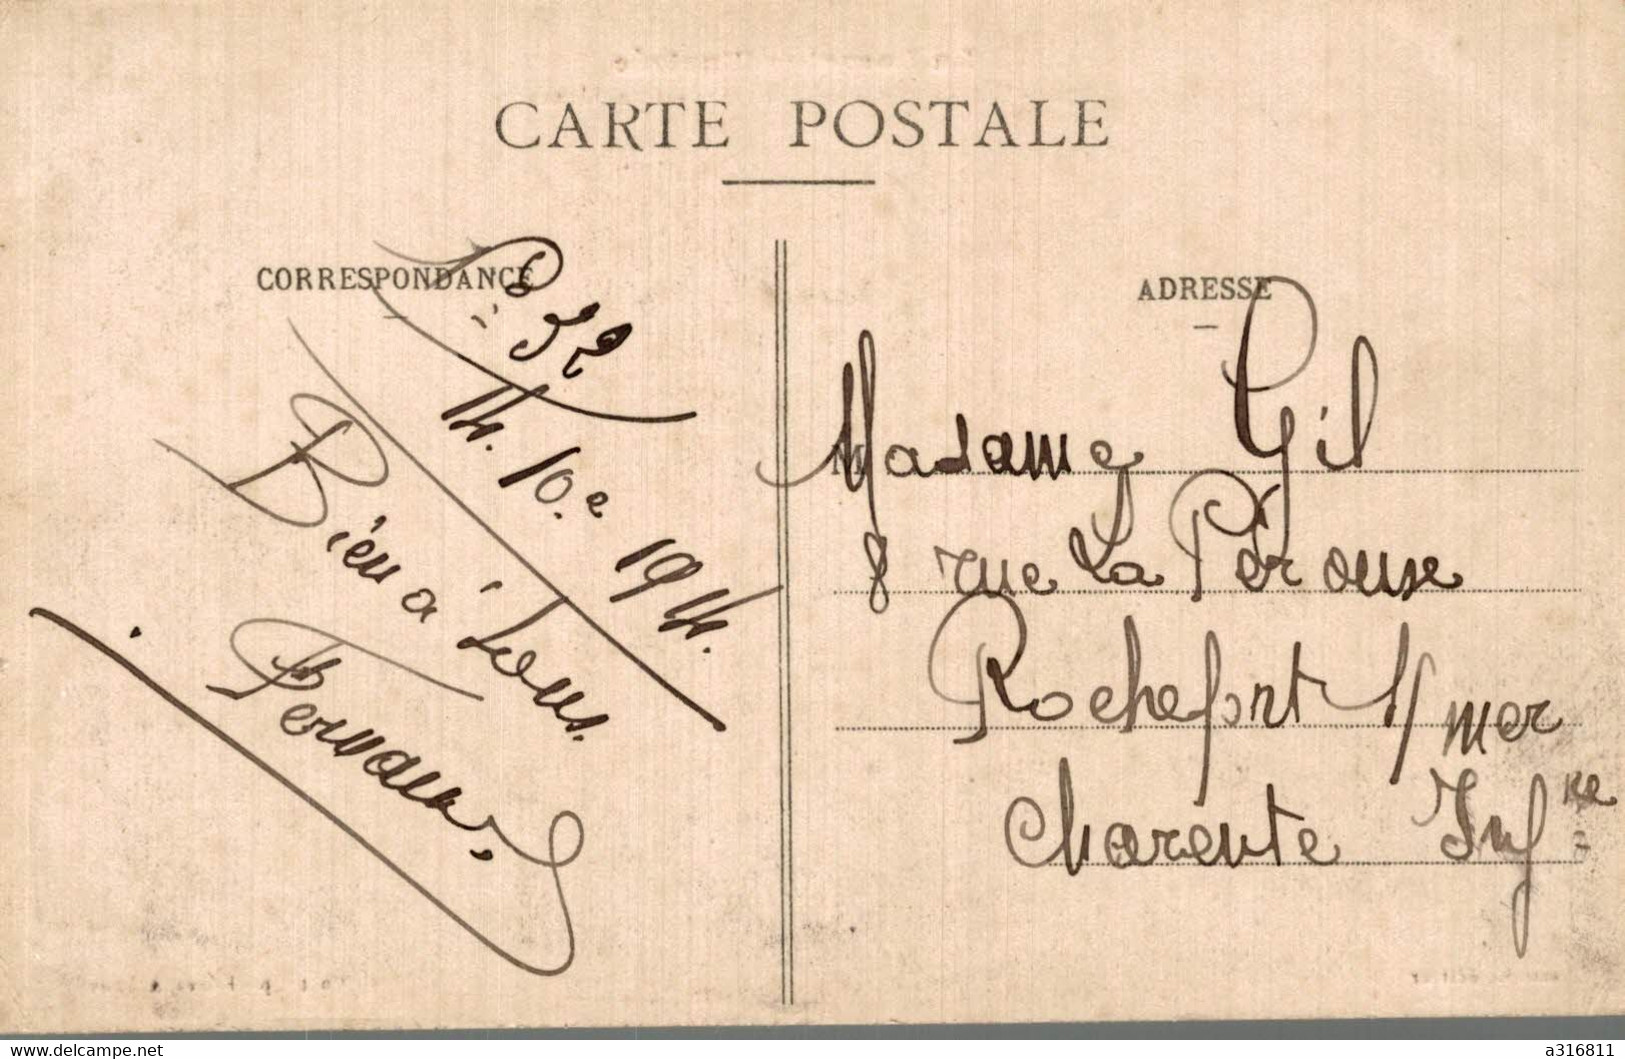 CARTE POSTALE
CORRESPONDANCE
No. 32
14. 10.e 1914.
Bien à Vous.
Fernand.
ADRESSE
Madame Gil
8 rue La Pérouse
Rochefort s/mer
Charente Infre
delcampe.net
a316811